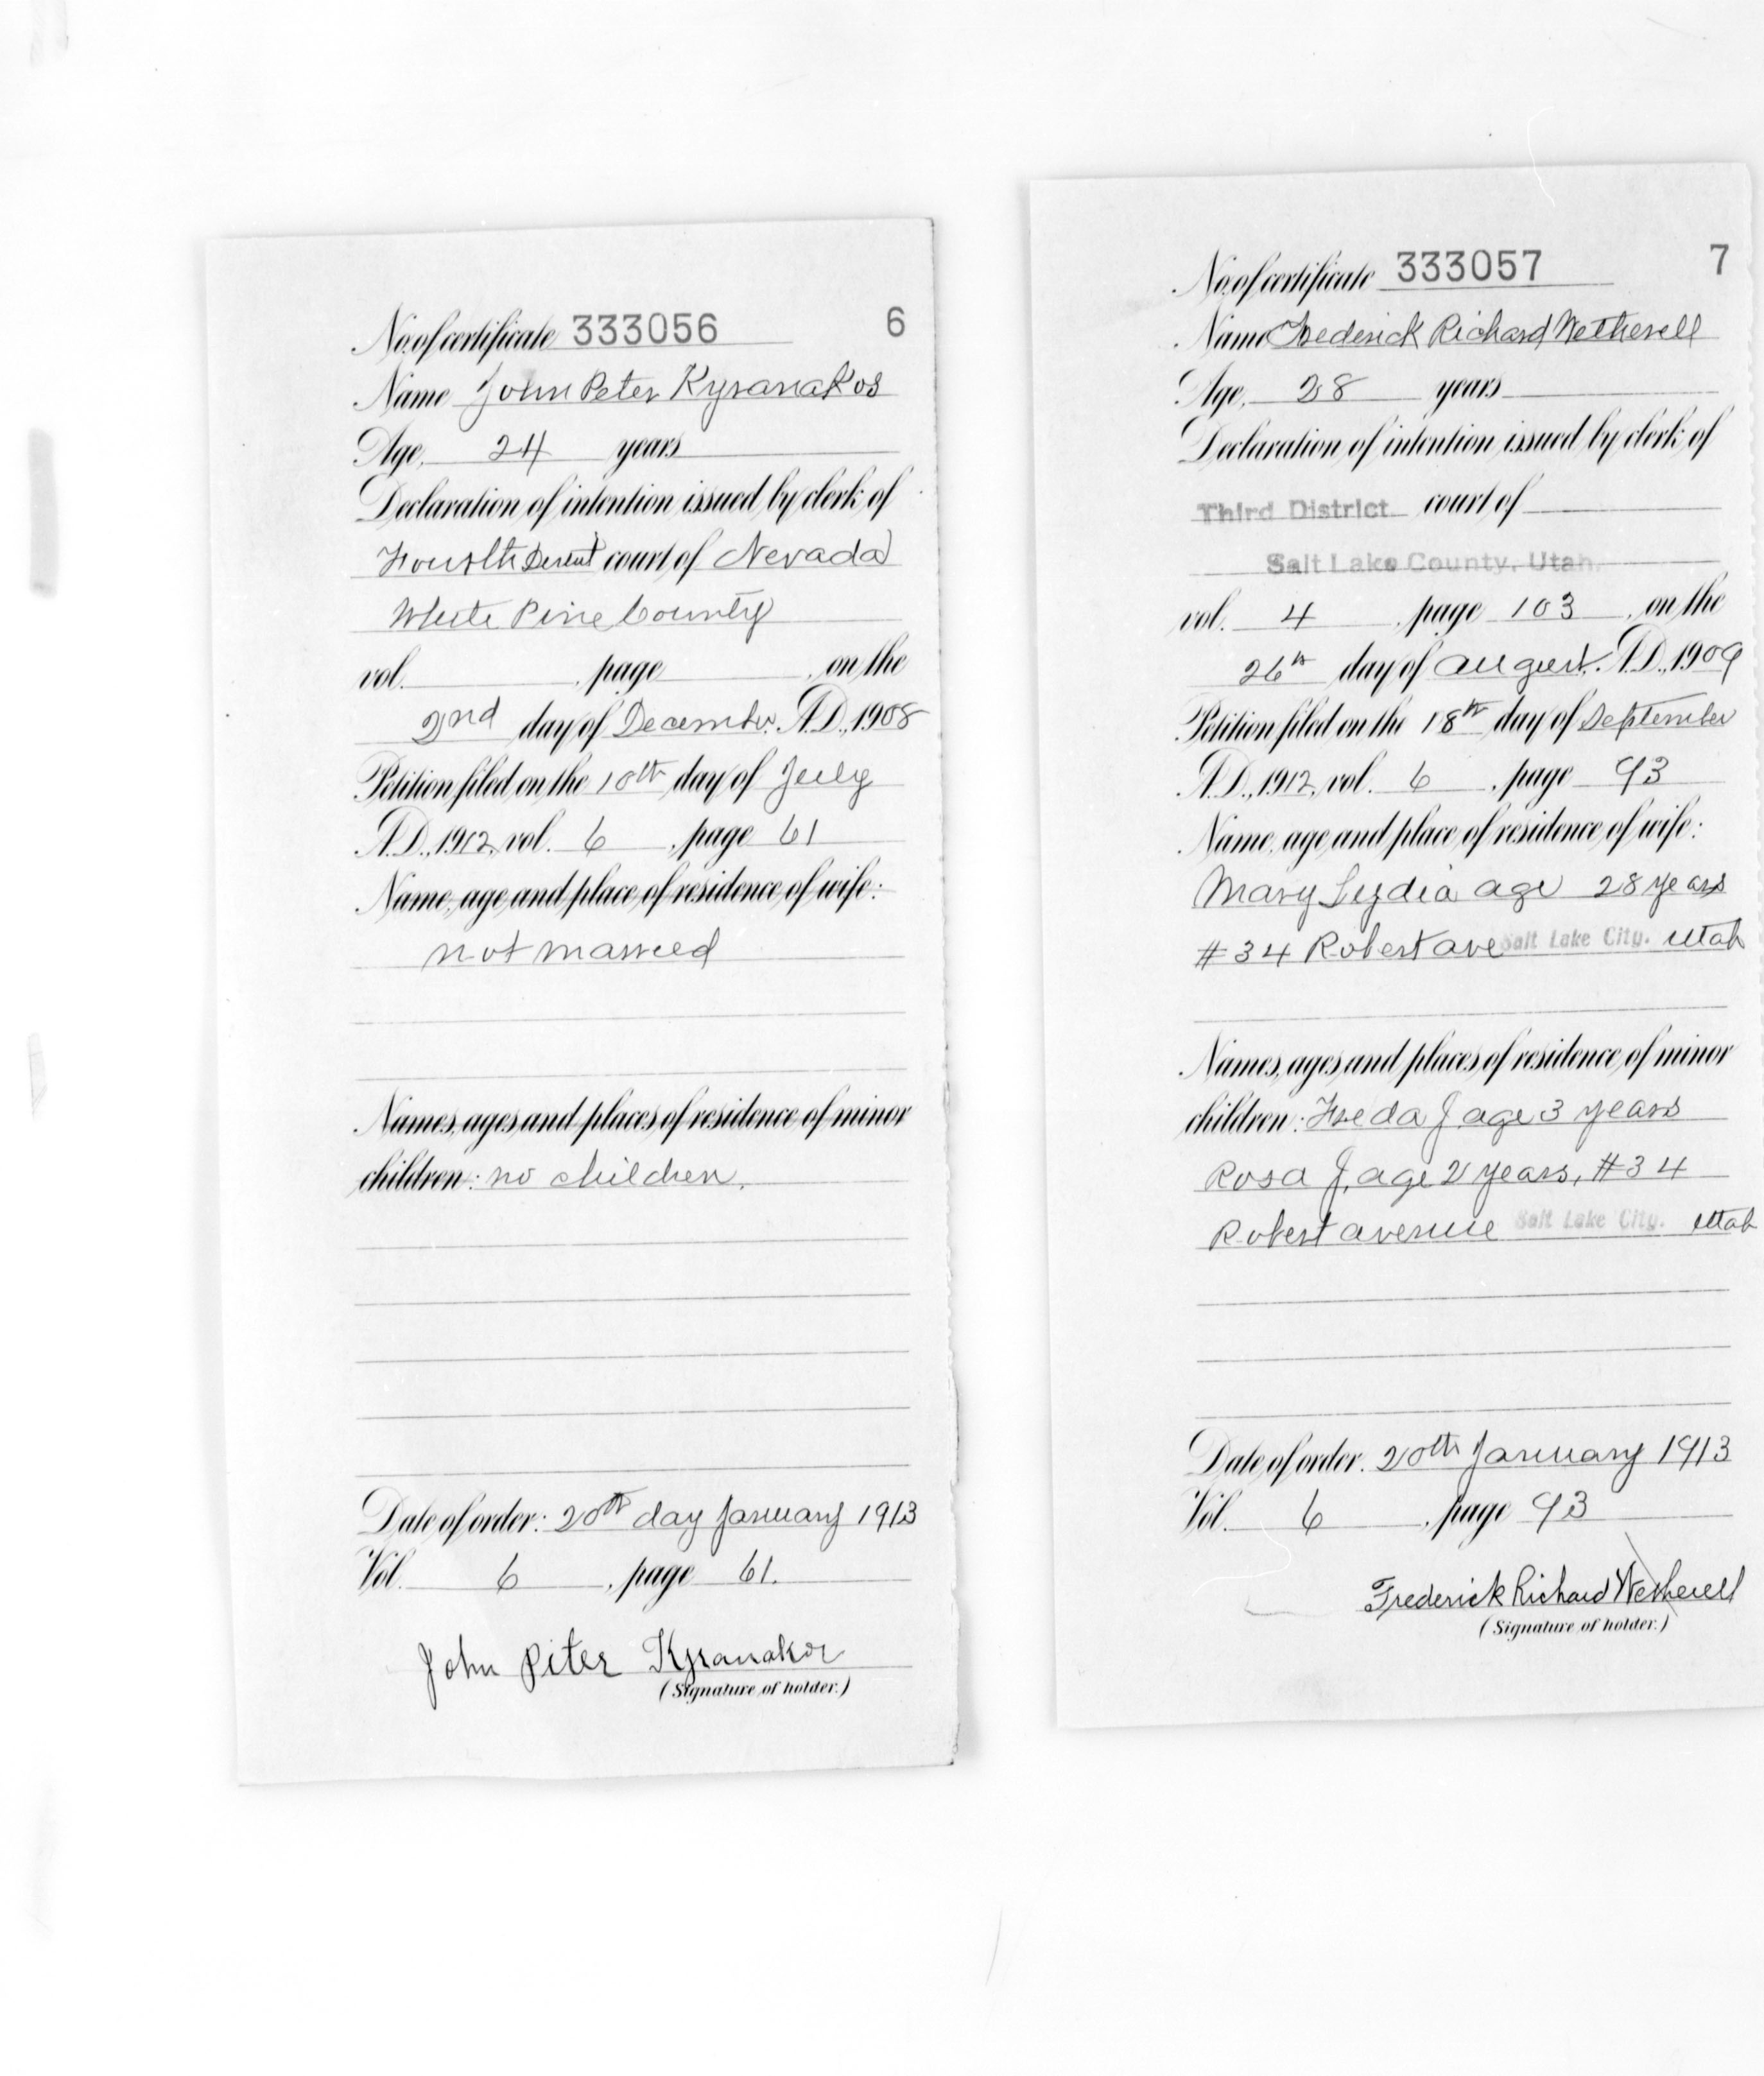 No. of certificate 333056 6
Name John Peter Kyranakos
Age, 24 years
Declaration of intention issued by clerk of
Fourth court of Nevada
White Pine County
vol. , page , on the
2nd day of December. A.D., 1908
Petition filed on the 10th day of July
A.D., 1912, vol. 6 , page 61
Name, age and place of residence of wife:
not married
Names, ages and places of residence of minor
children: no children.
Date of order: 20th day January 1913
Vol. 6 , page 61.
John Piter Kyranakos
(Signature of holder.)
No. of certificate 333057 7
Name Frederick Richard Wetherell
Age, 28 years
Declaration of intention issued by clerk of
Third District court of
Salt Lake County, Utah.
vol. 4 , page 103 , on the
26th day of August. A.D., 1909
Petition filed on the 18th day of September
A.D., 1912, vol. 6 , page 93
Name, age and place of residence of wife:
Mary Lydia age 28 years
#34 Robert ave Salt Lake City. Utah
Names, ages and places of residence of minor
children: Freda J age 3 years
Rosa J, age 2 years, #34
Robert avenue Salt Lake City. Utah
Date of order. 20th January 1913
Vol. 6 , page 93
Frederick Richard Wetherell
(Signature of holder.)